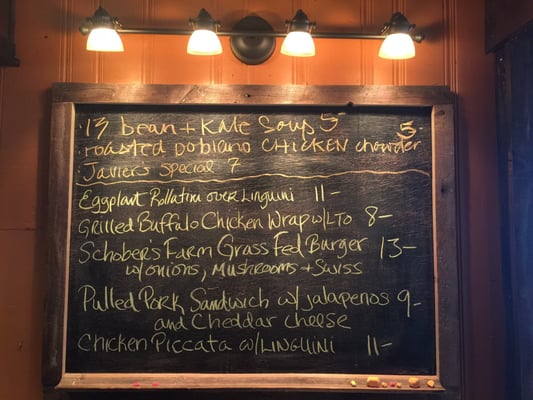 13 bean + Kale Soup 5
roasted poblano CHICKEN chowder 5
Javier's Special 7
Eggplant Rollatini over Linguini 11-
Grilled Buffalo Chicken Wrap w/LTO 8-
Schober's Farm Grass Fed Burger 13-
w/onions, Mushrooms + Swiss
Pulled Pork Sandwich w/jalapenos 9-
and Cheddar cheese
Chicken Piccata w/LINGUINI 11-